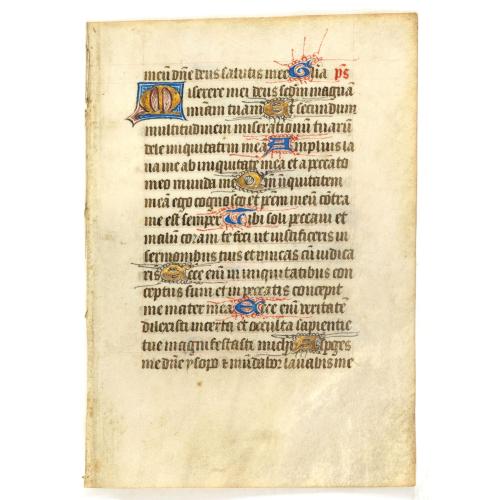 meū dñe deus salutis mee Gl̄ia p̄s
Miserere mei deus sedm̄ magnā
mīam tuam Et secundum
multitudinem miserationū tuarū
dele iniquitatem meā Amplius la
va me ab iniquitate mea et a peccato
meo munda me Qm̄ iniquitatem
meā ego cognosco et pctm̄ meū cōtra
me est semper Tibi soli peccavi et
malū coram te feci ut iustificeris in
sermonibus tuis et vincas cū iudica
ris Ecce enī in iniquitatibus con
ceptus sum et in peccatis concepit
me mater mea Ecce enī veritatē
dilexisti incerta et occulta sapientie
tue manifestasti michi Aspges
me dñe ysopo & mūdabor lavabis me